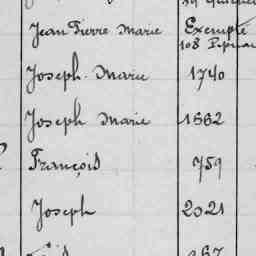 Jean Pierre Marie Exempté
108
Joseph Marie 1740
Joseph Marie 1662
François 759
Joseph 2021